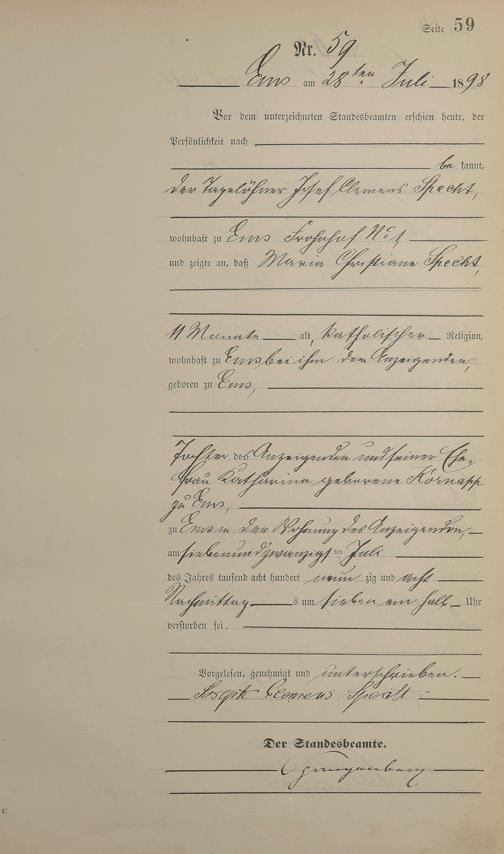 Seite 59
Nr. 59
Ems am 28ten Juli 1898
Vor dem unterzeichneten Standesbeamten erschien heute, der
Persönlichkeit nach
be kannt,
der Tagelöhner Josef Clemens Specht,
wohnhaft zu Ems Frohnhof No 1
und zeigte an, daß Maria Christiane Specht,
11 Monate alt, katholischer Religion,
wohnhaft zu Ems bei ihm dem Anzeigenden,
geboren zu Ems,
Tochter des Anzeigenden und seiner Ehe-
frau Katharina geborene
zu Ems,
zu Ems in der Wohnung des Anzeigenden,
am siebenundzwanzigsten Juli
des Jahres tausend acht hundert neun zig und acht
Nachmittags um sieben ein halb Uhr
verstorben sei.
Vorgelesen, genehmigt und unterschrieben.
Joseph Clemens Specht
Der Standesbeamte.
C.